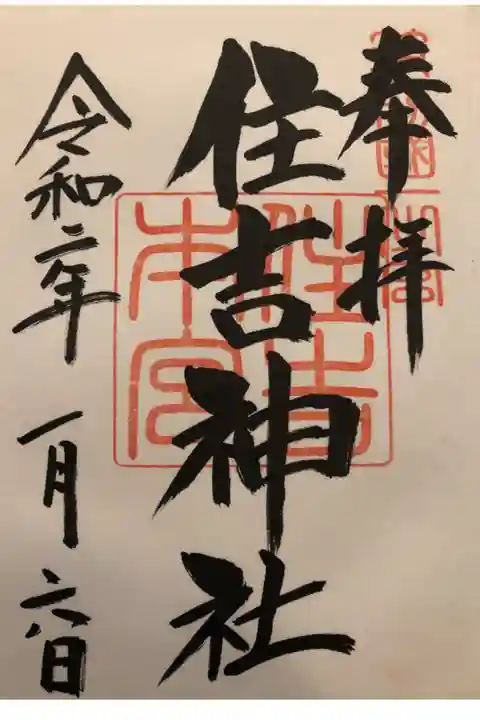 奉拝
住吉神社
住吉本宮
令和二年一月六日